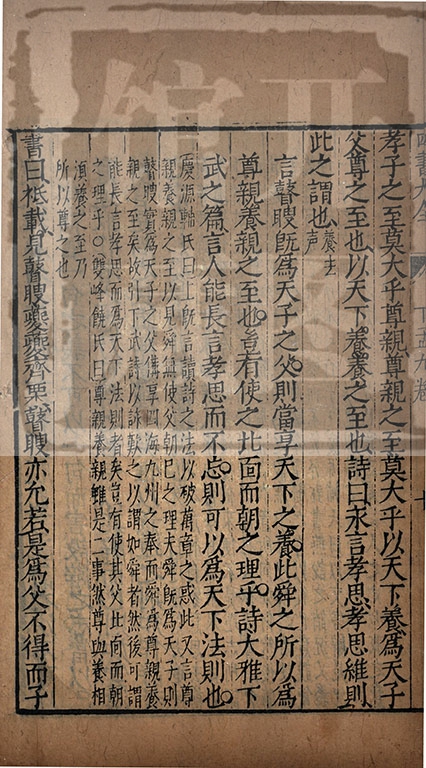 孝子之至莫大乎尊親尊親之至莫大乎以天下養爲天子
父尊之至也以天下養養之至也詩曰永言孝思孝思維則
此之謂也 養去聲
言瞽瞍既爲天子之父則當享天下之養此舜之所以爲
尊親養親之至也豈有使之北面而朝之理乎詩大雅下
武之篇言人能長言孝思而不忘則可以爲天下法則也
慶源輔氏曰上既言讀詩之法以破萬章之惑此又言尊
親養親之至以見舜無使父朝己之理夫舜既爲天子則
瞽瞍實爲天子之父備享四海九州之奉而舜爲尊親養
親之至矣故引下武詩以詠歎之以謂如舜者然後可謂
能長言孝思而爲天下法則者矣豈有使其父北向而朝
之理乎○雙峰饒氏曰尊親養親雖是二事然尊與養相
須養之至乃
所以尊之也
書曰祗載見瞽瞍夔夔齊栗瞽瞍亦允若是爲父不得而子